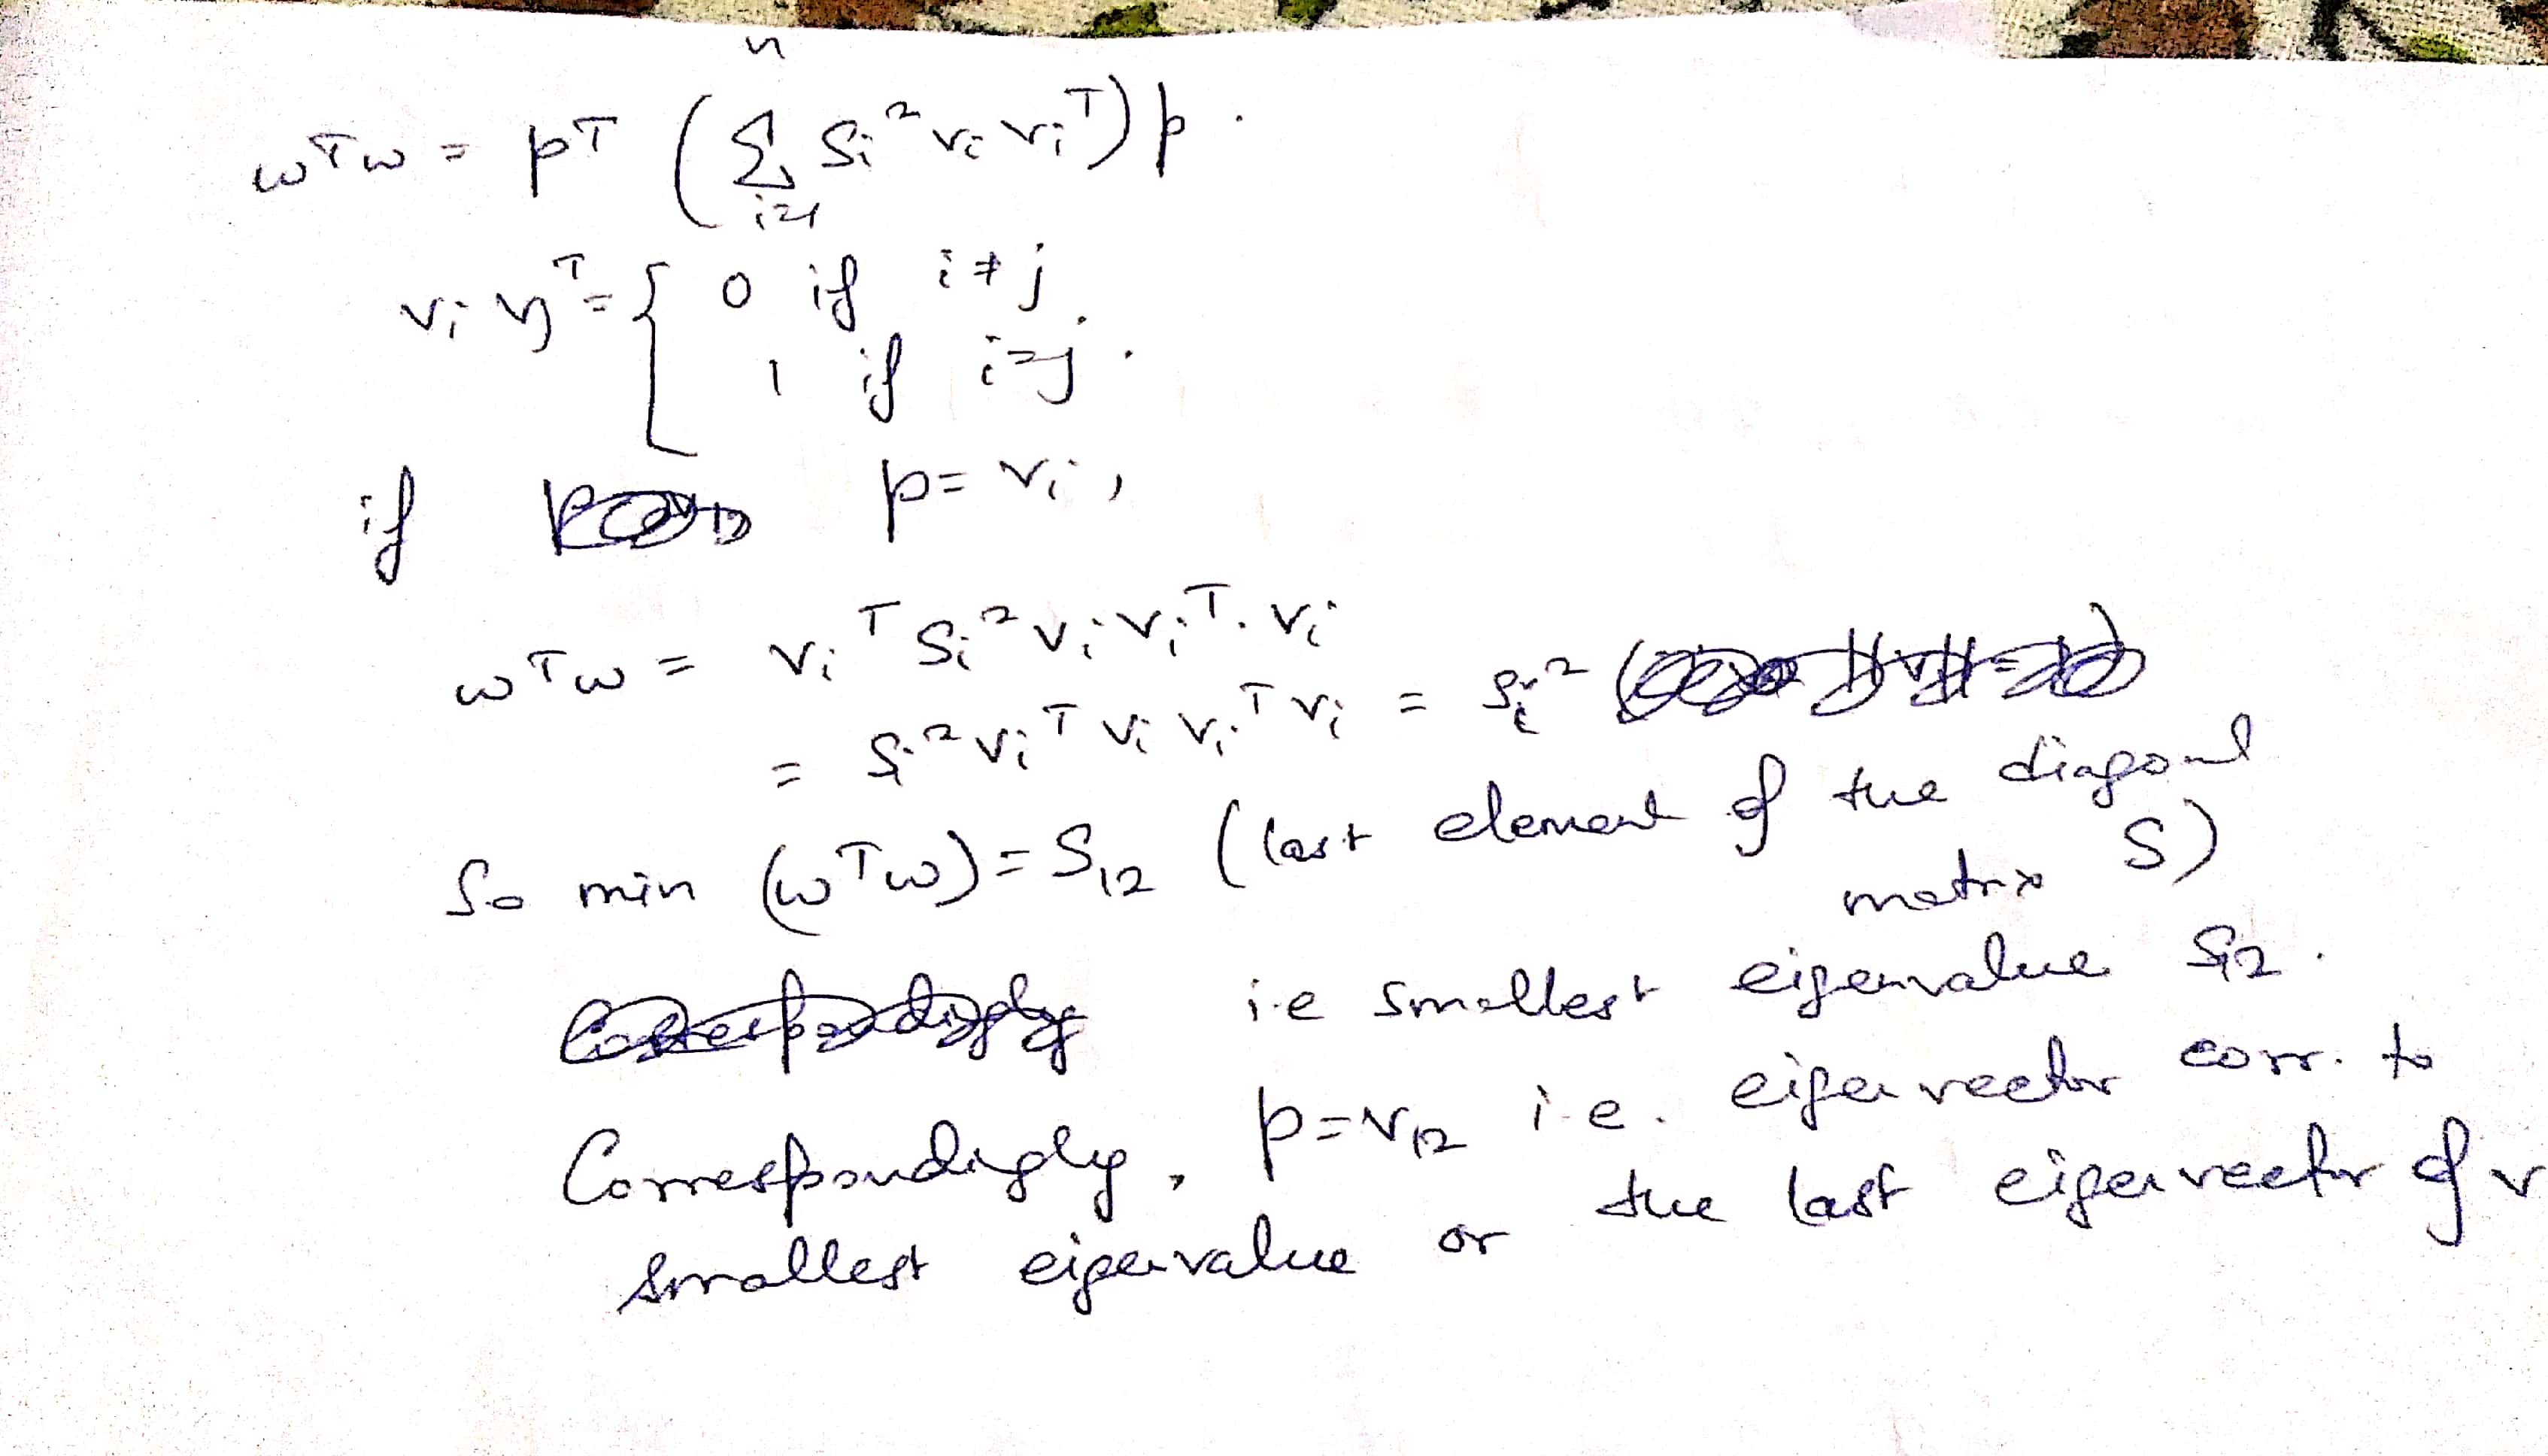 n
wᵀw = pᵀ ( Σ Sᵢ² vᵢ vᵢᵀ) p .
i=1
vᵢ vⱼᵀ = { 0 if i ≠ j
1 if i=j .
if p = vᵢ ,
wᵀw = vᵢᵀ Sᵢ² vᵢ vᵢᵀ . vᵢ
= Sᵢ² vᵢᵀ vᵢ vᵢᵀ vᵢ = Sᵢ²
So min (wᵀw) = S₁₂ ( last element of the diagonal
matrix S)
i.e smallest eigenvalue S₁₂ .
Correspondingly , p = v₁₂ i.e. eigenvector corr. to
smallest eigenvalue or the last eigenvector of v